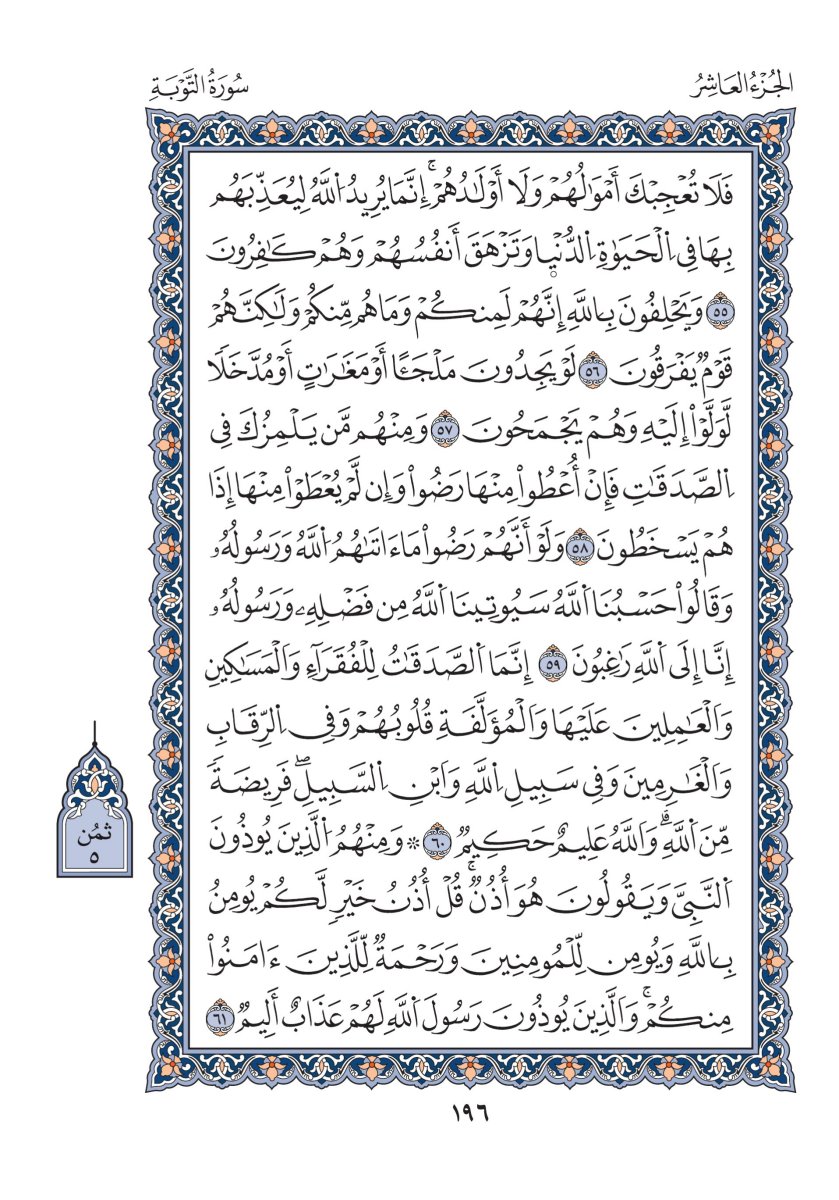 الجُزْءُ العَاشِرُ
سُورَةُ التَّوْبَةِ
فَلَا تُعْجِبْكَ أَمْوَٰلُهُمْ وَلَا أَوْلَٰدُهُمْۚ إِنَّمَا يُرِيدُ اُ۬للَّهُ لِيُعَذِّبَهُم
بِهَا فِے اِ۬لْحَيَوٰةِ اِ۬لدُّنْي۪ا وَتَزْهَقَ أَنفُسُهُمْ وَهُمْ كَٰفِرُونَ
٥٥ وَيَحْلِفُونَ بِاللَّهِ إِنَّهُمْ لَمِنكُمْ وَمَا هُم مِّنكُمْ وَلَٰكِنَّهُمْ
قَوْمٌ يَفْرَقُونَ ٥٦ لَوْ يَجِدُونَ مَلْجَـًٔا أَوْ مَغَٰرَٰتٍ أَوْ مُدَّخَلًا
لَّوَلَّوْاْ إِلَيْهِ وَهُمْ يَجْمَحُونَ ٥٧ وَمِنْهُم مَّن يَلْمِزُكَ فِے
اِ۬لصَّدَقَٰتِ فَإِنْ أُعْطُواْ مِنْهَا رَضُواْ وَإِن لَّمْ يُعْطَوْاْ مِنْهَا إِذَا
هُمْ يَسْخَطُونَ ٥٨ وَلَوْ أَنَّهُمْ رَضُواْ مَا ءَاتَىٰهُمُ اُ۬للَّهُ وَرَسُولُهُۥ
وَقَالُواْ حَسْبُنَا اَ۬للَّهُ سَيُوتِينَا اَ۬للَّهُ مِن فَضْلِهِۦ وَرَسُولُهُۥ
إِنَّا إِلَى اَ۬للَّهِ رَٰغِبُونَ ٥٩ إِنَّمَا اَ۬لصَّدَقَٰتُ لِلْفُقَرَآءِ وَالْمَسَٰكِينِ
وَالْعَٰمِلِينَ عَلَيْهَا وَالْمُؤَلَّفَةِ قُلُوبُهُمْ وَفِے اِ۬لرِّقَابِ
وَالْغَٰرِمِينَ وَفِے سَبِيلِ اِ۬للَّهِ وَابْنِ اِ۬لسَّبِيلِۖ فَرِيضَةً
مِّنَ اَ۬للَّهِۗ وَاللَّهُ عَلِيمٌ حَكِيمٌ ٦٠ ۞ وَمِنْهُمُ اُ۬لَّذِينَ يُوذُونَ
اَ۬لنَّبِيَّ وَيَقُولُونَ هُوَ أُذُنٌۚ قُلْ أُذُنُ خَيْرٍ لَّكُمْ يُومِنُ
بِاللَّهِ وَيُومِن لِّلْمُومِنِينَ وَرَحْمَةٌ لِّلَّذِينَ ءَامَنُواْ
مِنكُمْۚ وَالَّذِينَ يُوذُونَ رَسُولَ اَ۬للَّهِ لَهُمْ عَذَابٌ أَلِيمٌ ٦١
ثُمُن
٥
١٩٦